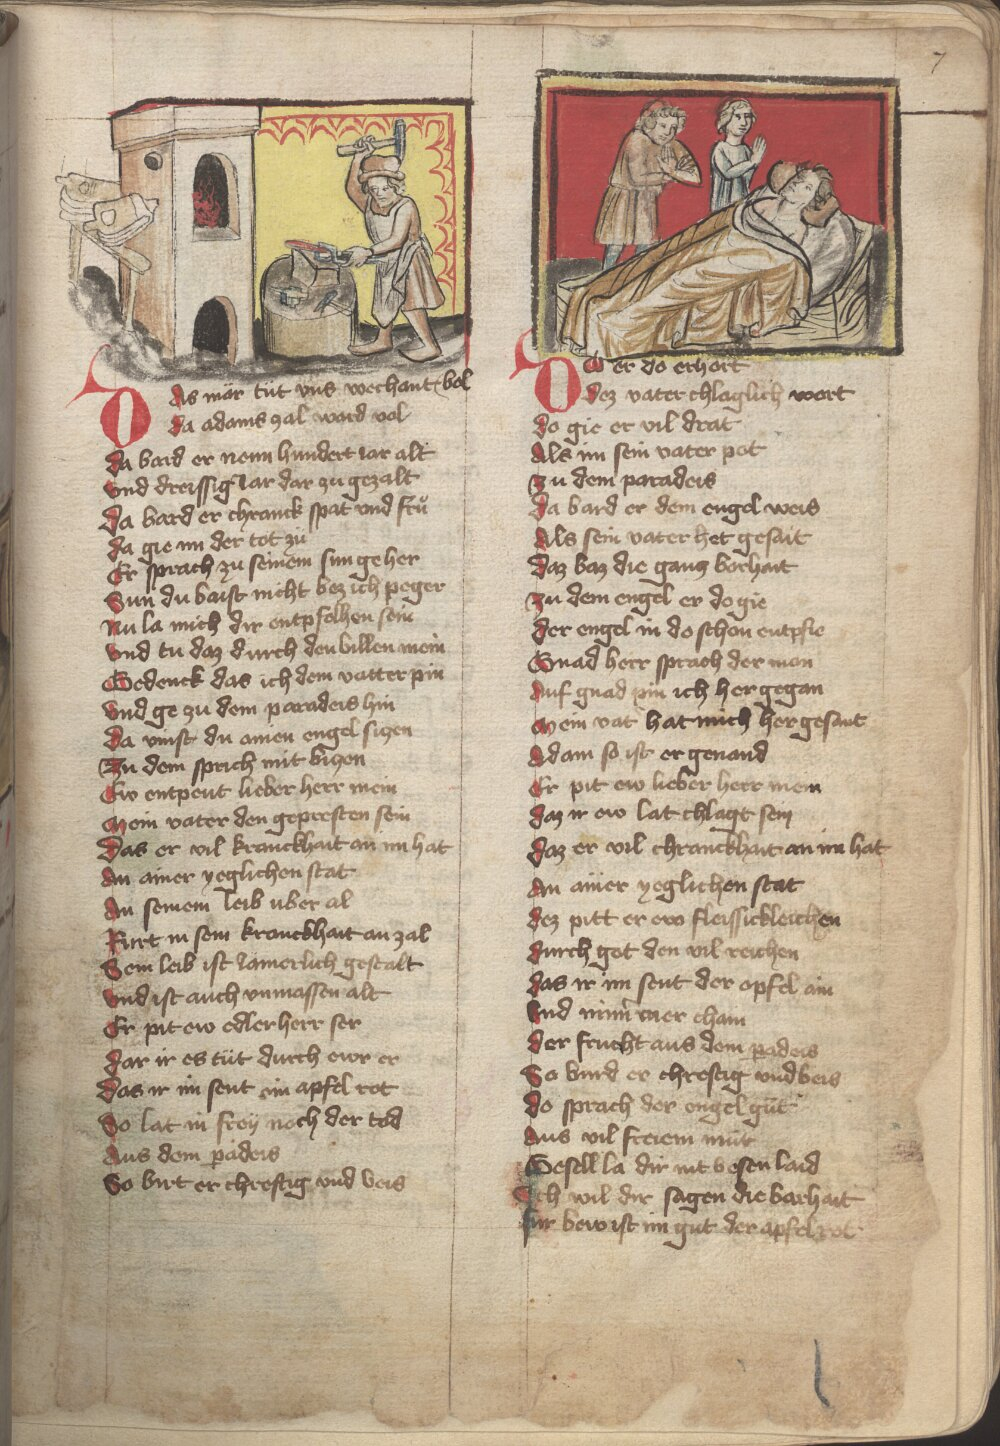 7
Das mär tüt uns wechant bol
da adams zal ward vol
da bard er nenn hundert iar alt
und dreissig iar dar zu gezalt
Da bard er chranck spat und fru
da gie im der tot zu
Er sprach zu seinem sun geher
Sun du baist nicht bez ich peger
Nu la mich dir entpfelhen sein
und tu daz durch den billen mein
Gedenck das ich dem vatter pin
und ge zu dem paradeis hin
da vinst du ainen engel sizen
Zu dem sprich mit bizen
Ew entpeut lieber herr mein
Mein vater den gepresten sein
Das er vil kranckhait an im hat
An ainer yeglichen stat
An seinem leib uber al
Furt in sein kranckhait an zal
Sein leib ist iamerlich gestalt
und ist auch unmassen alt
Er pit ew edler herr ser
dar ir es tüt durch ewr er
Das ir im sent ein apfel rot
So lat in frey noch der tod
Aus dem padeis
So birt er chreftig und beis
Do er do erhort
dez vater chlaglich wort
do gie er vil drat
Als im sein vater pot
zu dem paradeis
Da bard er dem engel weis
Als sein vater het gesait
Daz baz die ganz borhait
zu dem engel er do gie
der engel in do schon entpfie
Gnad herr sprach der man
Auf gnad pin ich her gegan
Mein vat hat mich her gesant
Adam so ist er genand
Er pit ew lieber herr mein
daz ir ew lat chlagt sein
daz er vil chranckhait an im hat
An ainer yeglichen stat
dez pitt er ew fleissickleichen
durch got den vil reichen
das ir im sent der apfel ain
und nimmer cham
der frucht aus dem padeis
So burd er chreftig und beis
do sprach der engel güt
Aus vil freiem müt
Gesell la dir nit besen laid
Ich wil dir sagen die barhait
für bew ist im gut der apfel rot